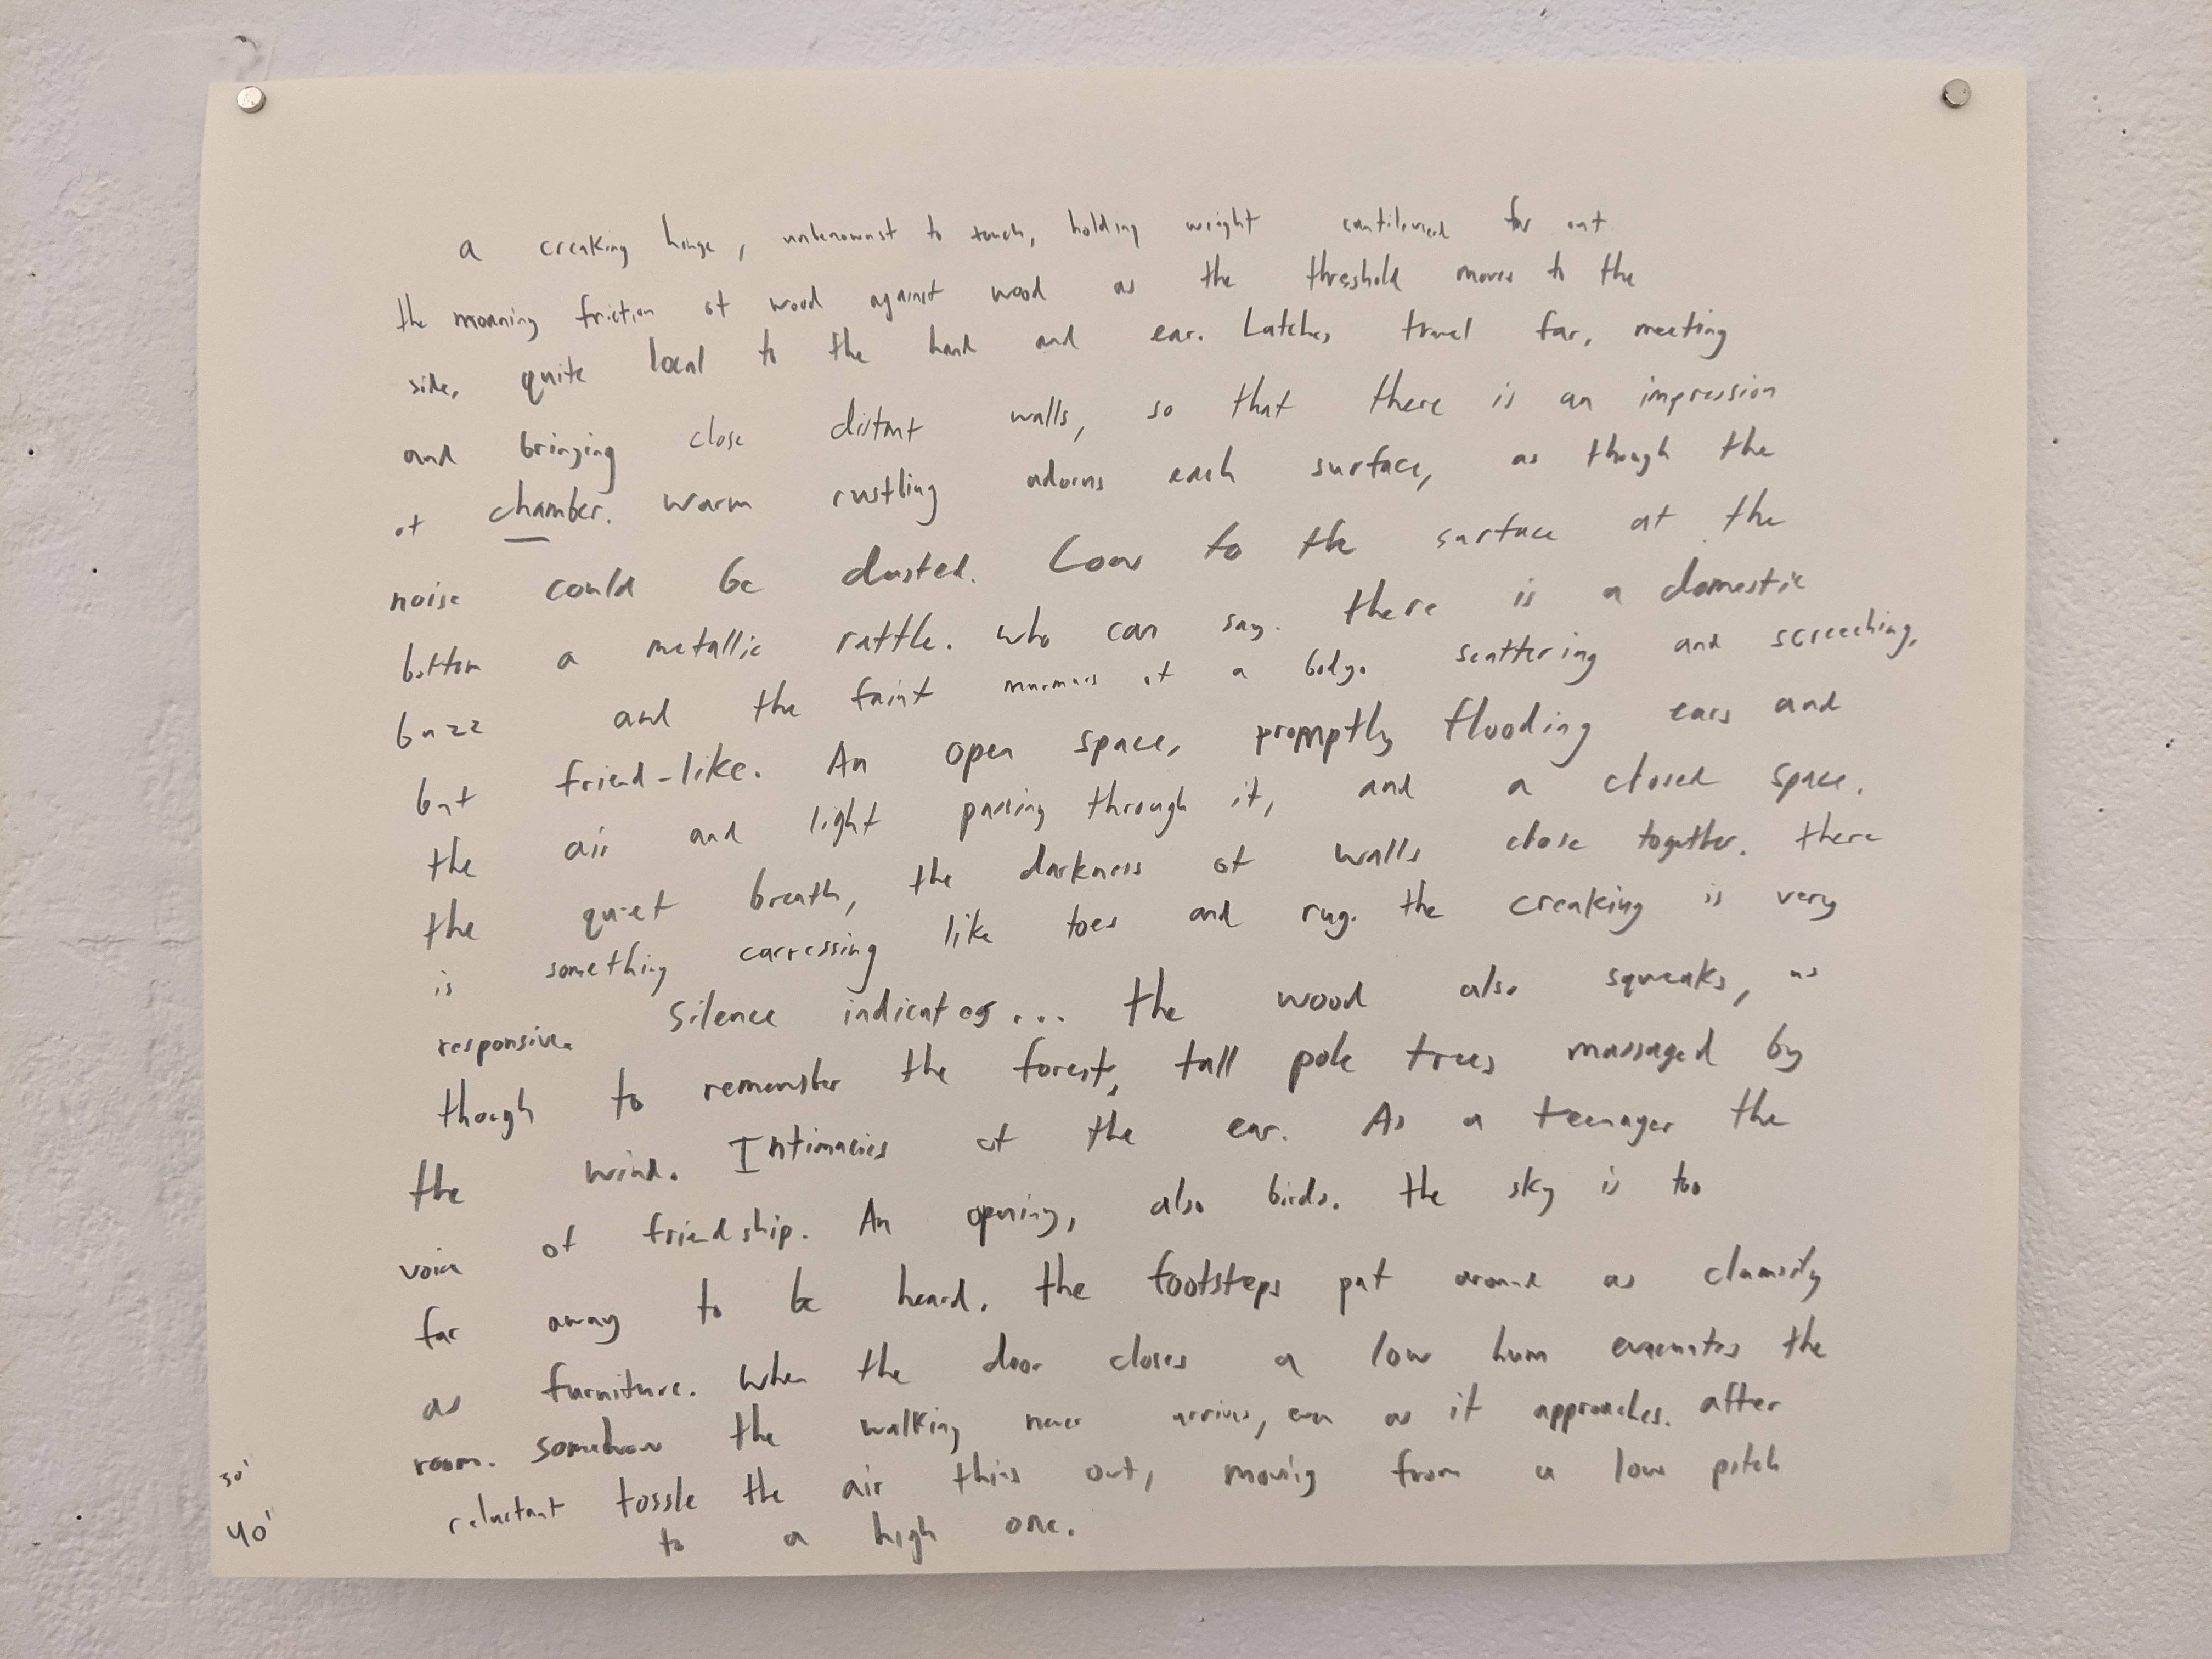 a creaking hinge, unbenownst to touch, holding weight cantilevered far out
the moaning friction of wood against wood as the threshold moves to the
side, quite local to the hand and ear. Latches travel far, meeting
and bringing close distant walls, so that there is an impression
of chamber. warm rustling adorns each surface, as though the
noise could be dusted. Low to the surface at the
bottom a metallic rattle. who can say. there is a domestic
buzz and the faint murmurs of a body. scattering and screeching,
but friend-like. An open space, promptly flooding ears and
the air and light passing through it, and a closed space.
the quiet breath, the darkness of walls close together. there
is something carressing like toes and rug. the creaking is very
responsive. Silence indicates... the wood also squeaks, as
though to remember the forest, tall pole trees massaged by
the wind. Intimacies of the ear. As a teenager the
voice of friendship. An opening, also birds. the sky is too
far away to be heard. the footsteps put around as clumsily
as furniture. when the door closes a low hum evacuates the
room. somehow the walking never arrives, even as it approaches. after
reluctant tossle the air thins out, moving from a low pitch
to a high one.
30'
40'